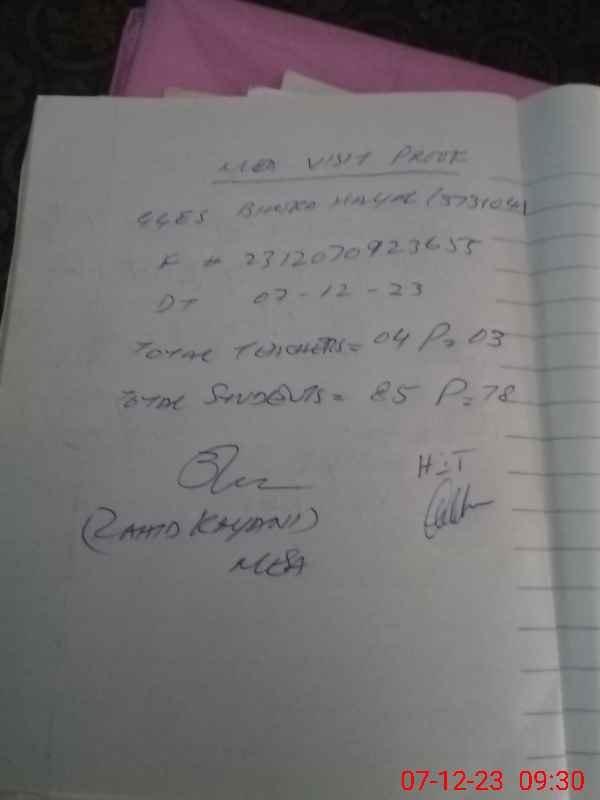 MEA VISIT PROOF
GGES
F # 2312070923655
DT 07-12-23
TOTAL TEACHERS = 04 P = 03
TOTAL STUDENTS = 85 P = 78
H-T
(ZAHID KAYANI)
MEA
07-12-23 09:30